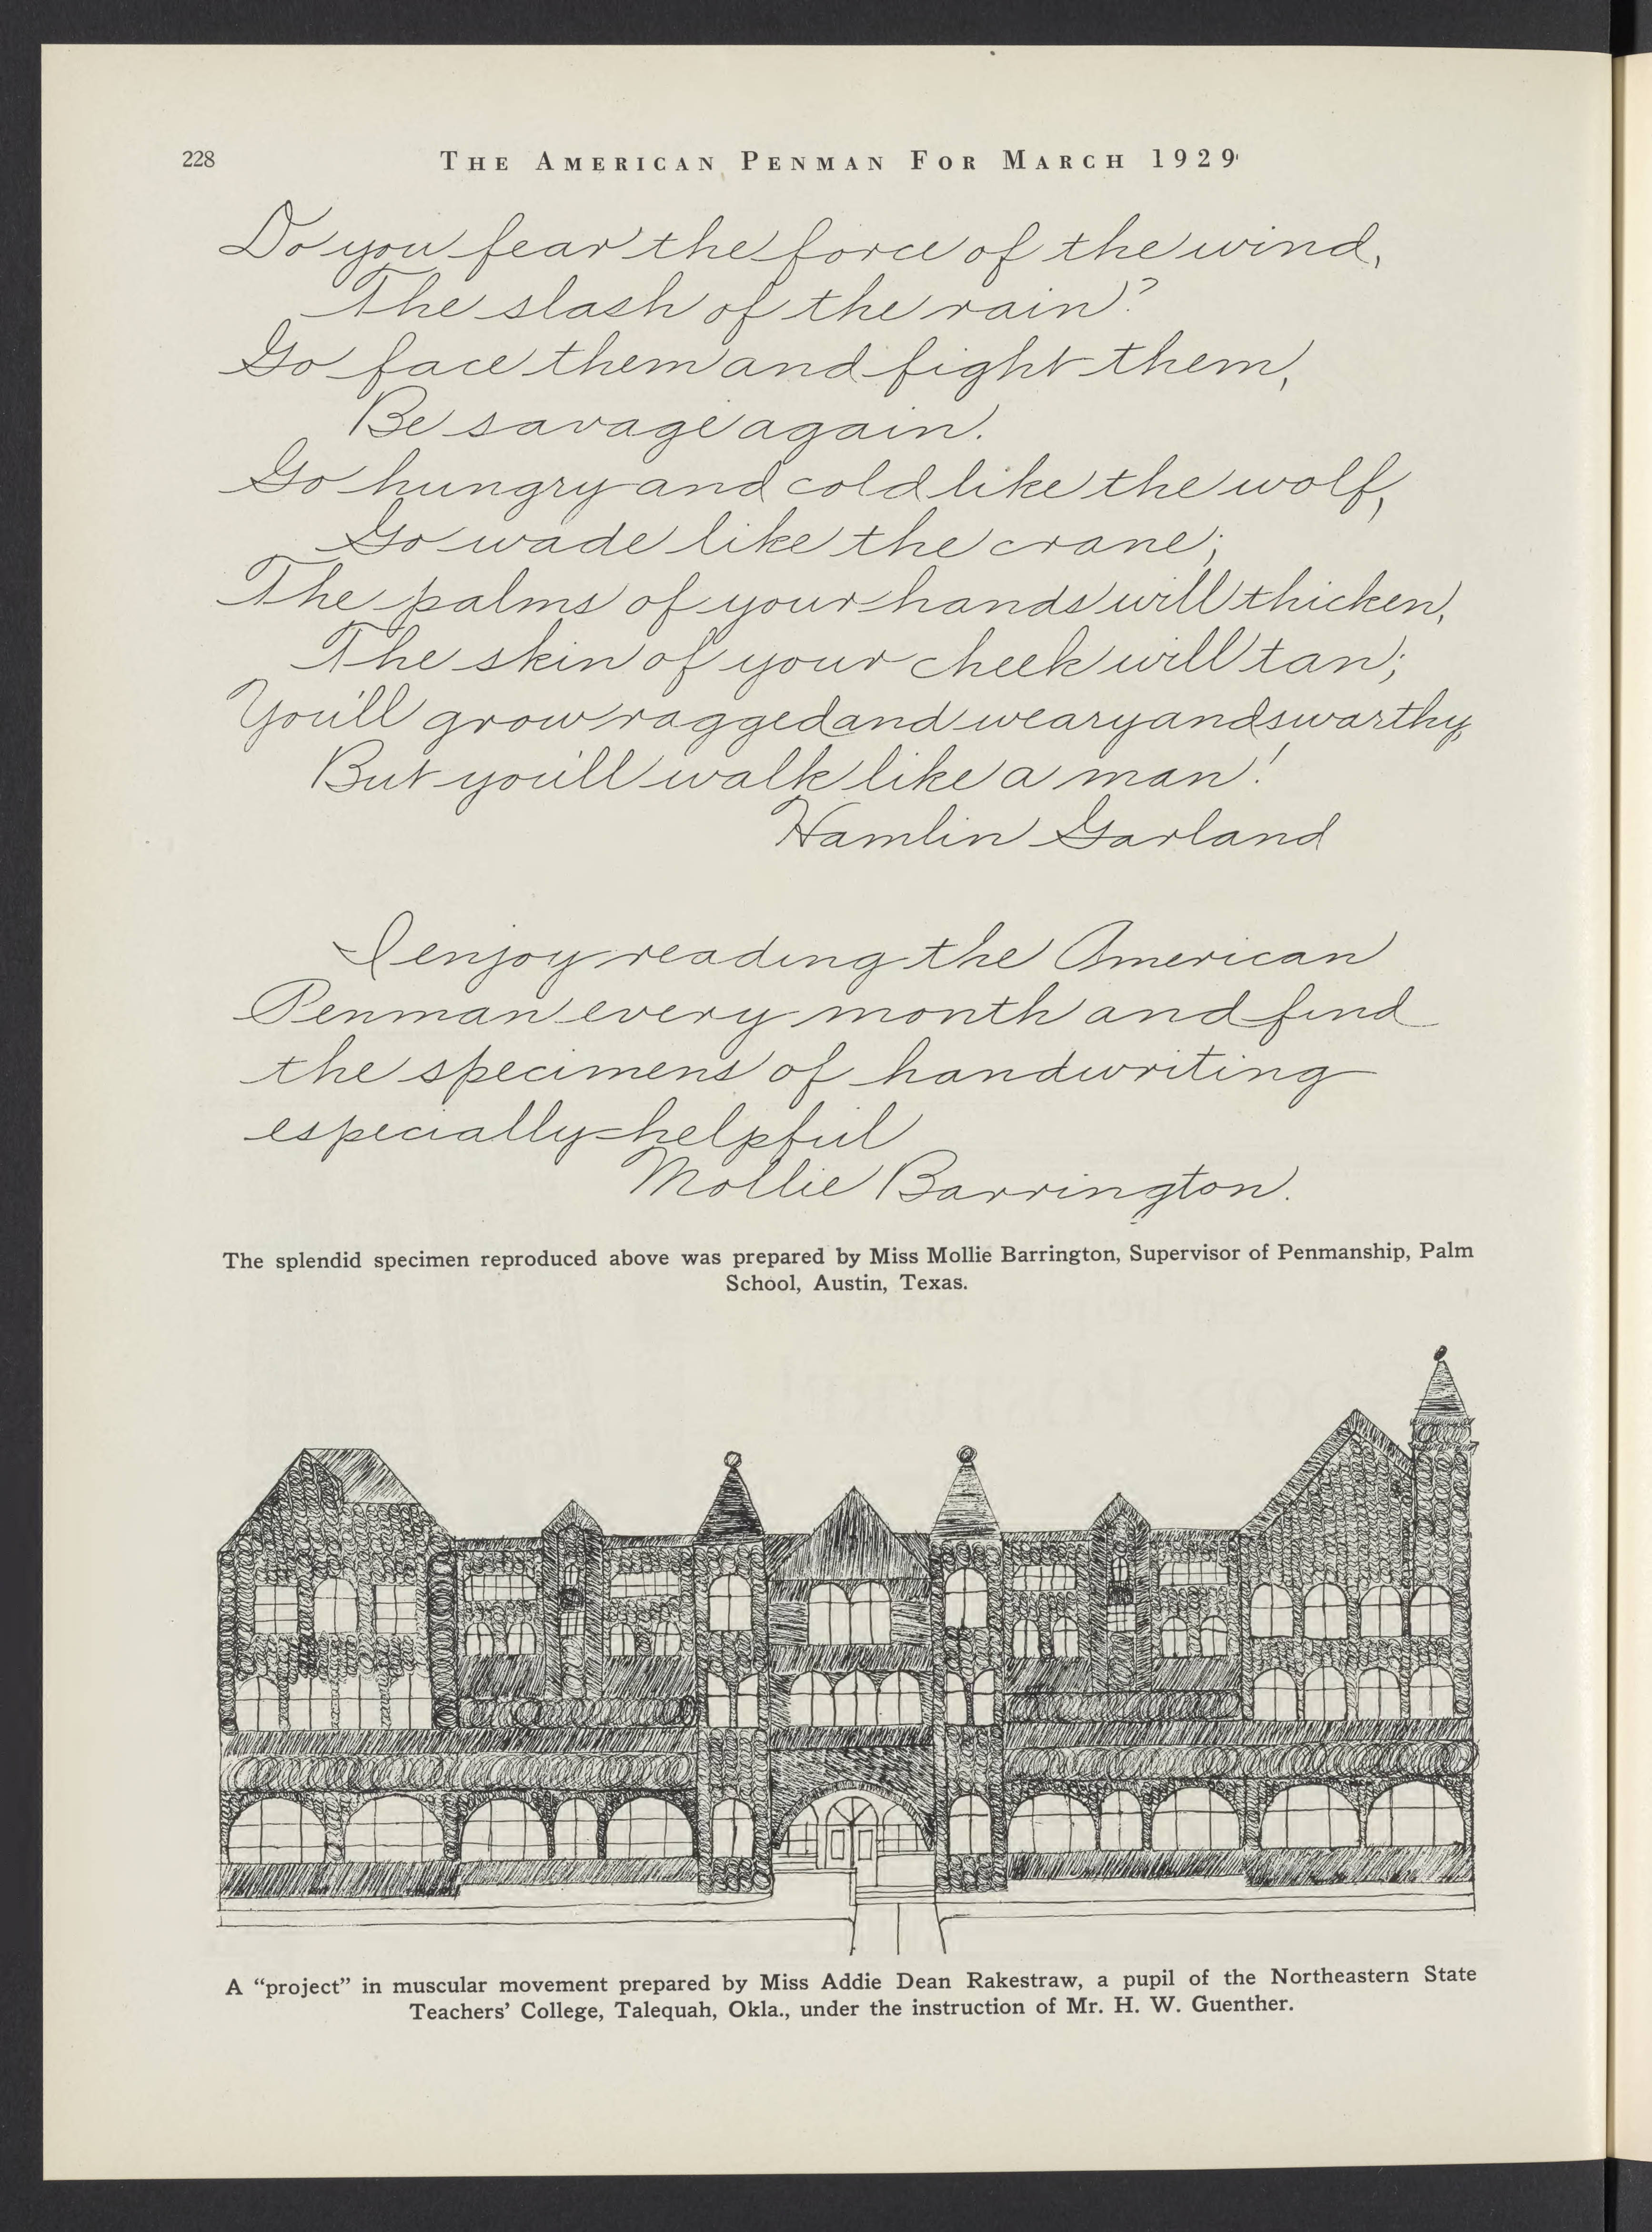 228
THE AMERICAN PENMAN FOR MARCH 1929
Do you fear the force of the wind,
The slash of the rain?
Go face them and fight them,
Be savage again.
Go hungry and cold like the wolf,
Go wade like the crane;
The palms of your hands will thicken,
The skin of your cheek will tan;
You'll grow ragged and weary and swarthy,
But you'll walk like a man!
Hamlin Garland
I enjoy reading the American
Penman every month and find
the specimens of handwriting
especially helpful
Mollie Barrington.
The splendid specimen reproduced above was prepared by Miss Mollie Barrington, Supervisor of Penmanship, Palm
School, Austin, Texas.
A “project” in muscular movement prepared by Miss Addie Dean Rakestraw, a pupil of the Northeastern State
Teachers’ College, Talequah, Okla., under the instruction of Mr. H. W. Guenther.